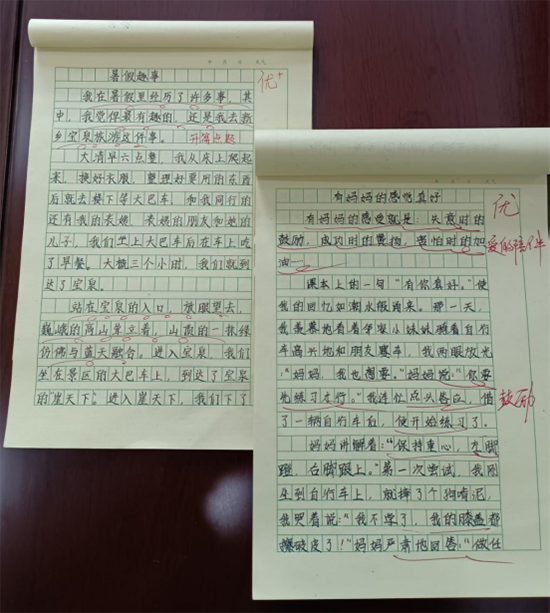 年 月 日 天气
暑假趣事
优+
我在暑假里经历了许多事，其
中，我觉得最有趣的，还是我去新
乡宝泉旅游这件事。
开篇点题
大清早六点整，我从床上爬起
来，换好衣服，整理好要用的东西
后就去楼下等大巴车，和我同行的
还有我的表嫂、表嫂的朋友和她的
儿子，我们坐上大巴车后在车上吃
了早餐。大概三个小时，我们就到
达了宝泉。
站在宝泉的入口，放眼望去，
巍峨的高山耸立着，山顶的一抹绿
仿佛与蓝天融合。进入宝泉，我们
坐在景区的大巴车上，到达了宝泉
的"崖天下"。进入崖天下，我们下了
年 月 日 天气
有妈妈的感觉真好
优
有妈妈的感受就是：失意时的
鼓励，成功时的赞扬，害怕时的加
油……
爱的陪伴
课本上的一句"有你真好。"使
我的回忆如潮水般涌来。那一天，
我羡慕地看着邻家小妹妹骑着自行
车高兴地和朋友赛车，我两眼放光
："妈妈，我也想要。"妈妈说："你要
先练习才行。"我连忙点头答应，借
了一辆自行车后，便开始练习了。
鼓励
妈妈讲解着："保持重心，左脚
蹬，右脚跟上。"第一次尝试，我刚
坐到自行车上，就摔了个狗啃泥，
我哭着说："我不学了，我的膝盖都
擦破皮了！"妈妈严肃地回答："做任